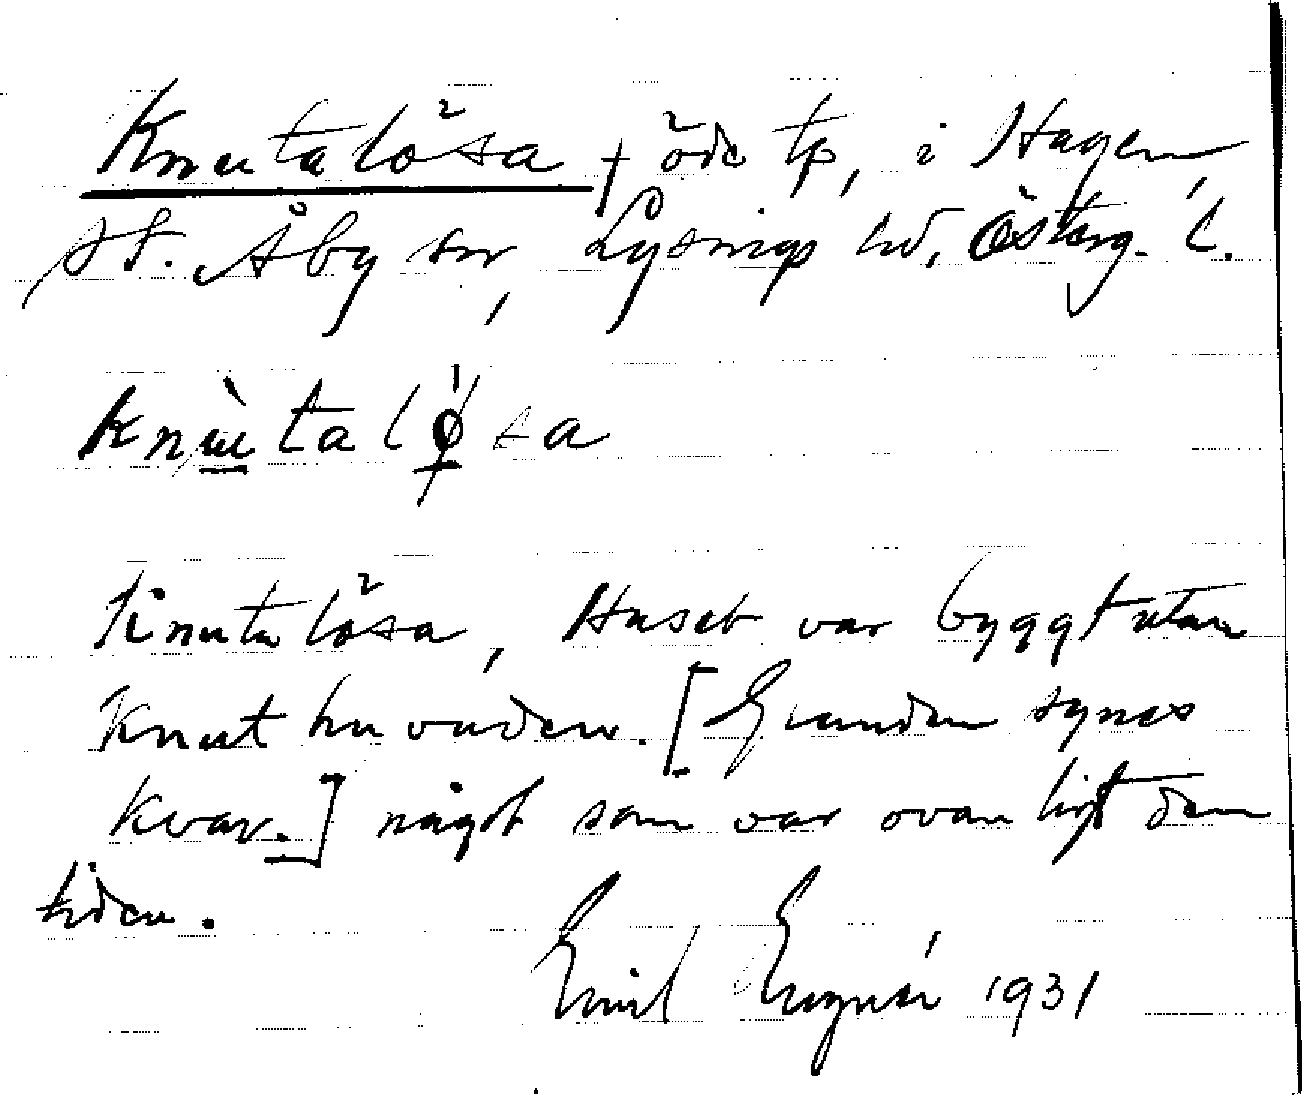 Knutalösa, öde tp, i Hagen,
St. Åby sn, Lysings hd, Österg. l.
Knùtalǿsa
Knutalösa, Huset var byggt utan
knuthuvuden. [Grunden synes
kvar.] något som var ovanligt den
tiden.
Emil 1931